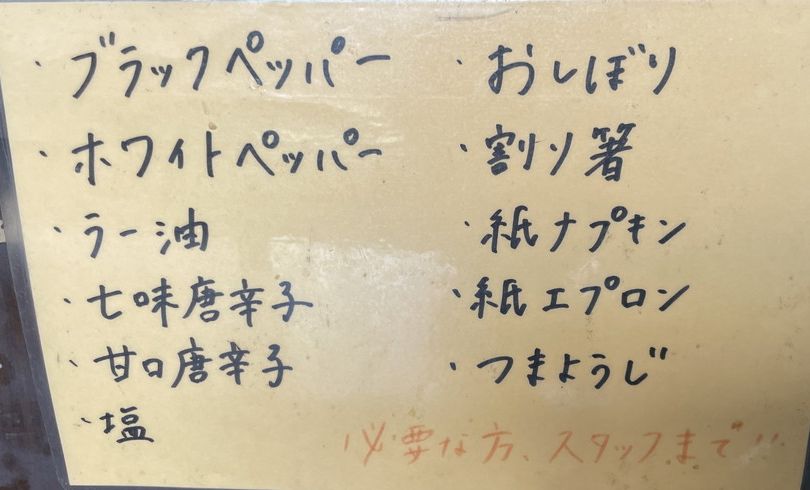 ・ブラックペッパー
・ホワイトペッパー
・ラー油
・七味唐辛子
・甘口唐辛子
・塩
・おしぼり
・割り箸
・紙ナプキン
・紙エプロン
・つまようじ
必要な方、スタッフまで!!